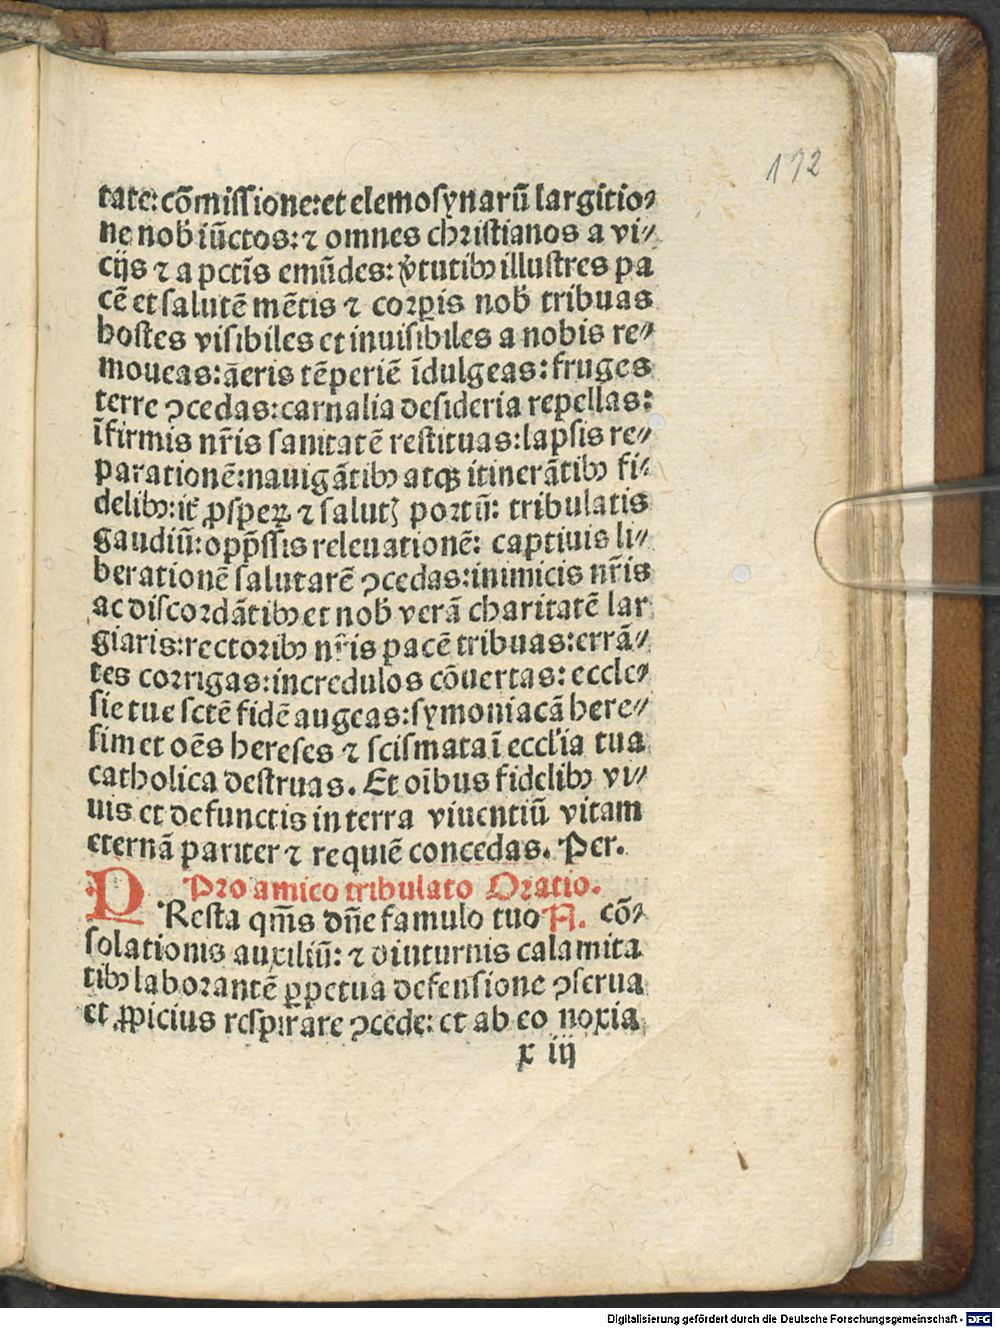 172
tate: cōmissione: et elemosynarū largitio⸗
ne nob̄ iūctos: ⁊ omnes christianos a vi⸗
cijs ⁊ a pctīs emūdes: v̓tutibꝫ illustres pa
cē et salutē mētis ⁊ corꝑis nob̄ tribuas
hostes visibiles et inuisibiles a nobis re⸗
moueas: āeris tēperiē īdulgeas: fruges
terre ꝯcedas: carnalia desideria repellas:
īfirmis nr̄is sanitatē restituas: lapsis re⸗
parationē: nauigātibꝫ atqꝫ itinerātibꝫ fi⸗
delibꝫ: it̓ ꝓsperꝝ ⁊ salutꝭ portū: tribulatis
gaudiū: opp̄ssis releuationē: captiuis li⸗
berationē salutarē ꝯcedas: inimicis nr̄is
ac discordātibꝫ et nob̄ verā charitatē lar
giaris: rectoribꝫ nr̄is pacē tribuas: errā⸗
tes corrigas: incredulos cōuertas: eccle⸗
sie tue sctē fidē augeas: symoniacā here⸗
sim et oēs hereses ⁊ scismata ī eccl'ia tua
catholica destruas. Et oībus fidelibꝫ vi⸗
uis et defunctis in terra viuentiū vitam
eternā pariter ⁊ requiē concedas. Per.
Pro amico tribulato Oratio.
PResta qm̄s dn̄e famulo tuo N. cō⸗
solationis auxiliū: ⁊ diuturnis calamita
tibꝫ laborantē ꝑpetua defensione ꝯserua
et ꝓpicius respirare ꝯcede: et ab eo noxia
x iij
Digitalisierung gefördert durch die Deutsche Forschungsgemeinschaft - DFG